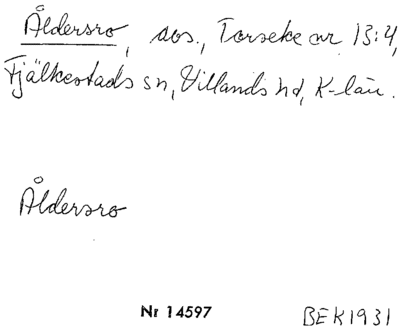 Åldersro, aos., Torseke nr 13:4,
Fjälkestads sn, Villands hd, K-län.
Åldersro
Nr 14597
BEK1931